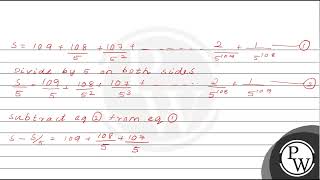 S = 109 + 108/5 + 107/5² + - - - - - - 2/5¹⁰⁹ + 1/5¹⁰⁸ —①
Divide by 5 on both sides
S/5 = 109/5 + 108/5² + 107/5³ + - - - - - - 2/5¹⁰⁸ + 1/5¹⁰⁹ —②
Subtract eq ② from eq ①
S - S/5 = 109 + 108/5 + 107/5
PW